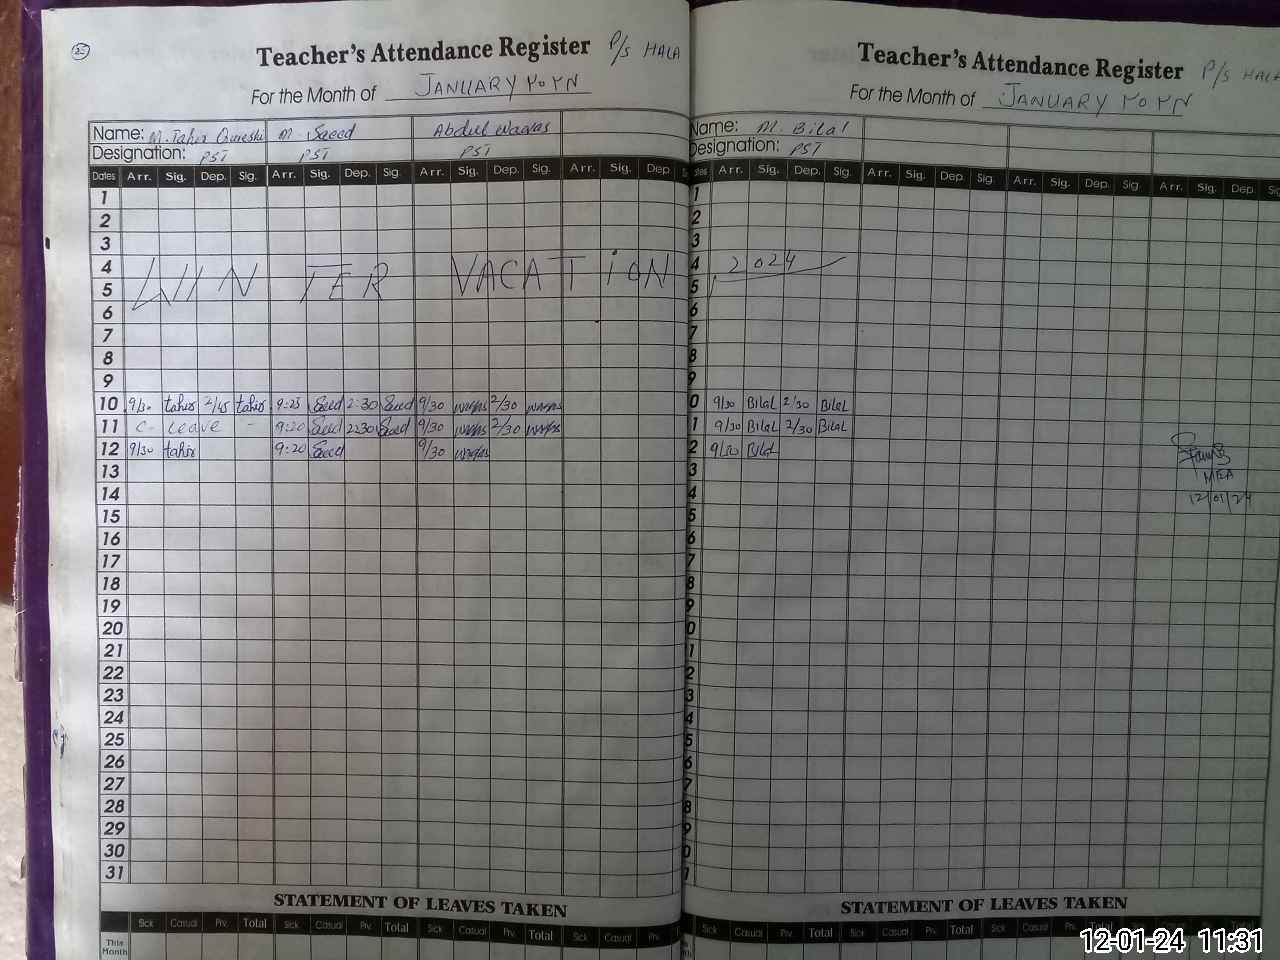 25
Teacher's Attendance Register P/S HALA
For the Month of JANUARY ۲۰۲۴
Name: M. Tahir Qureshi M. Saeed Abdul Waqas
Designation: PST PST PST
Dates Arr. Sig. Dep. Sig. Arr. Sig. Dep. Sig. Arr. Sig. Dep. Sig. Arr. Sig. Dep.
1
2
3
4
5
WINTER VACATION
6
7
8
9
10 9/30 tahir 2/45 tahir 9:25 Saeed 2:30 Saeed 9/30 waqas 2/30 waqas
11 C- Leave - 9:20 Saeed 2:30 Saeed 9/30 waqas 2/30 waqas
12 9/30 tahir 9:20 Saeed 9/30 waqas
13
14
15
16
17
18
19
20
21
22
23
24
25
26
27
28
29
30
31
STATEMENT OF LEAVES TAKEN
Sick Casual Prv. Total Sick Casual Prv. Total Sick Casual Prv. Total Sick Casual Prv.
This
Month
Teacher's Attendance Register P/S HALA
For the Month of JANUARY ۲۰۲۴
Name: M. Bilal
Designation: PST
Arr. Sig. Dep. Sig. Arr. Sig. Dep. Sig. Arr. Sig. Dep. Sig. Arr. Sig. Dep.
1
2
3
4
, 2024
5
6
7
8
9
0 9/30 Bilal 2/30 Bilal
1 9/30 Bilal 2/30 Bilal
2 9/30 Bilal
MEA
12/01/24
3
4
5
6
7
8
9
0
1
2
3
4
5
6
7
8
9
0
1
STATEMENT OF LEAVES TAKEN
Sick Casual Prv. Total Sick Casual Prv. Total Sick Casual Prv. Total
12-01-24 11:31